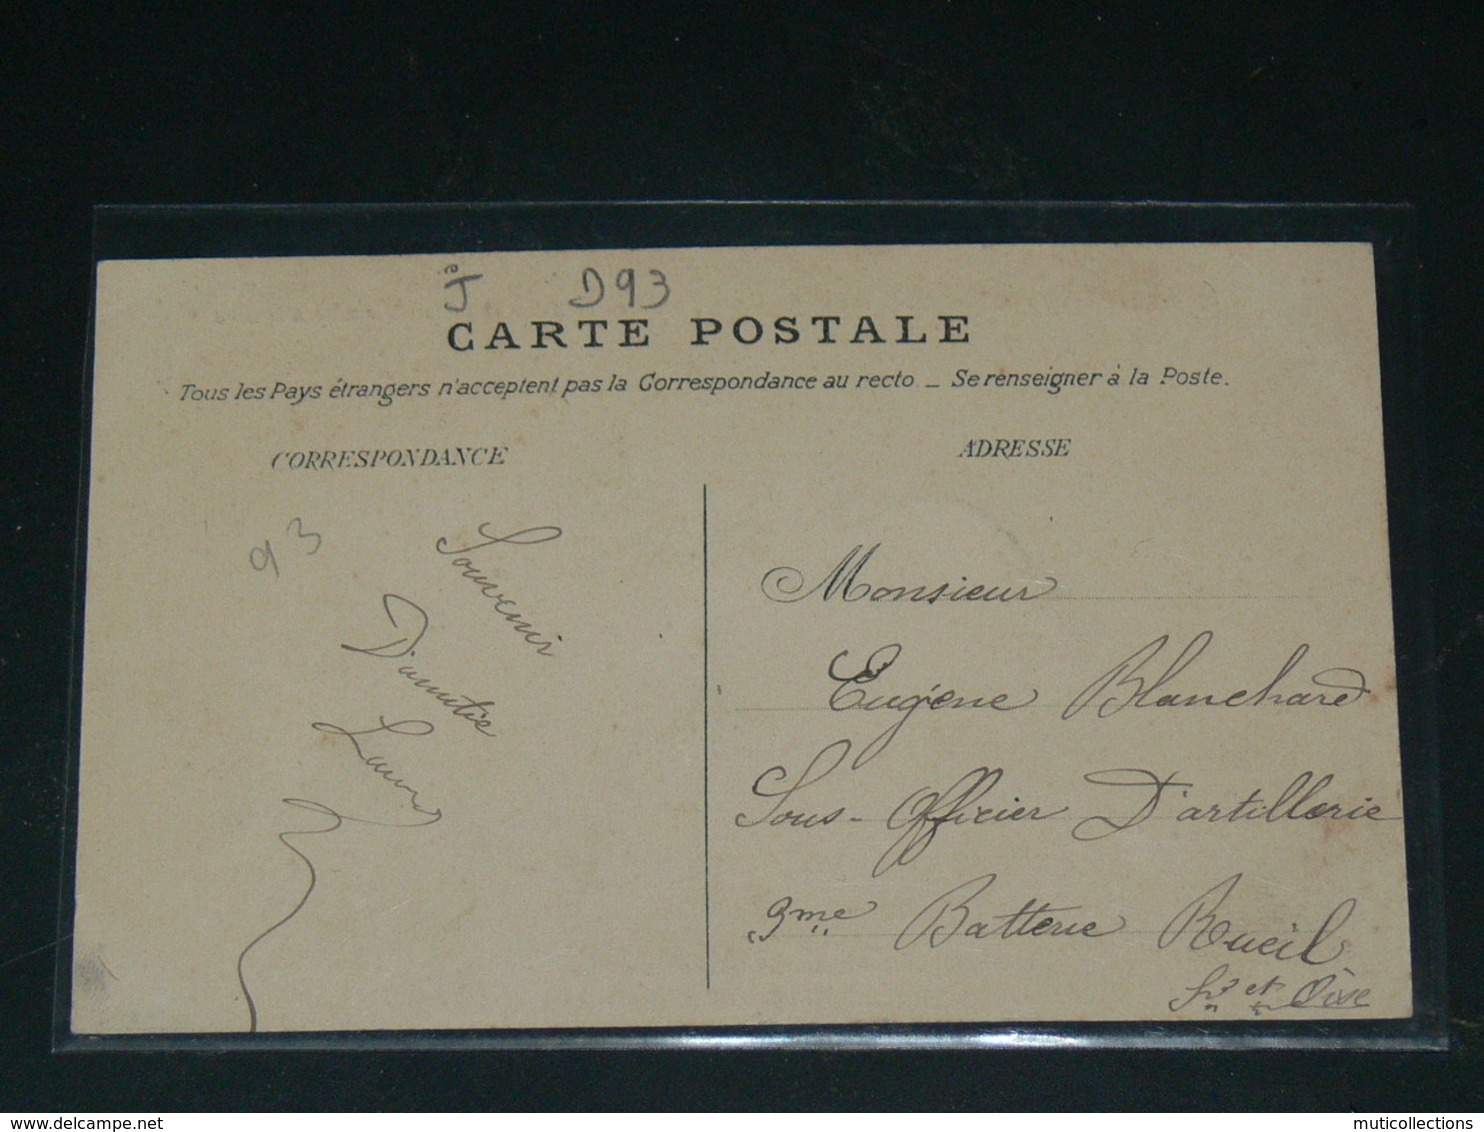 J D93
CARTE POSTALE
Tous les Pays étrangers n'acceptent pas la Correspondance au recto _ Se renseigner à la Poste.
CORRESPONDANCE
93
Souvenir
D'amitié
ADRESSE
Monsieur
Eugène Blanchard
Sous-Officier D'artillerie
9me Batterie Rueil
Sne et Oise
delcampe.net
muticollections